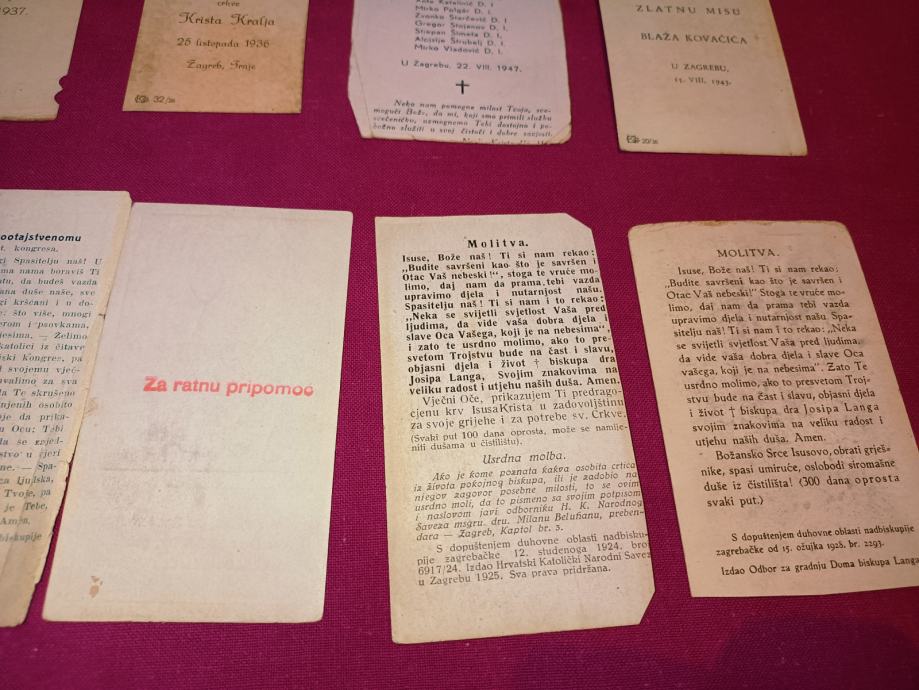 1937.
crkve
Krista Kralja
25 listopada 1936
Zagreb, Trnje
32/36
Ante Katalinić D. I.
Mirko Polgar D. I.
Zvonko Starčević D. I.
Gregor Stojanov D. I.
Stjepan Šimeta D. I.
Alojzije Štrubelj D. I.
Mirko Vladović D. I.
U Zagrebu, 22. VIII. 1947.
Neka nam pomogne milost Tvoja, sve-
mogući Bože, da mi, koji smo primili službu
svećeničku, uzmognemo Tebi dostojno i po-
božno služiti u svoj čistoći i dobre savjesti.
ZLATNU MISU
BLAŽA KOVAČIĆA
U ZAGREBU,
15. VIII. 1943.
20/36
ootajstvenomu
t. kongresa.
gi Spasitelju naš! U
ma nama boraviš Ti
tu, da budeš vazda
ana duše naše, sve
gi kršćani i u do-
e: što više, mnogi
erom i psovkama,
jesima. — Želimo
katolici iz čitave
jski kongres, pa
d svojemu vječ-
uvalimo za sva
da Te skrušeno
njenih osobito
oje da prika-
u Ocu; Tebi
da se zajed-
stvo u vjeri
ne. — Spa-
za ljudska,
Tvoje, pa
je Tebe,
Amen.
biskupije
Za ratnu pripomoć
Molitva.
Isuse, Bože naš! Ti si nam rekao:
„Budite savršeni kao što je savršen i
Otac Vaš nebeski!“, stoga te vruće mo-
limo, daj nam da prama tebi vazda
upravimo djela i nutarnjost našu.
Spasitelju naš! Ti si nam i to rekao:
„Neka se svijetli svjetlost Vaša pred
ljudima, da vide vaša dobra djela i
slave Oca Vašega, koji je na nebesima“,
i zato te usrdno molimo, ako to pre-
svetom Trojstvu bude na čast i slavu,
objasni djela i život † biskupa dra
Josipa Langa, Svojim znakovima na
veliku radost i utjehu naših duša. Amen.
Vječni Oče, prikazujem Ti predrago-
cjenu krv IsusaKrista u zadovoljštinu
za svoje grijehe i za potrebe sv. Crkve.
(Svaki put 100 dana oprosta, može se namije-
niti dušama u čistilištu).
Usrdna molba.
Ako je kome poznata kakva osobita crtica
iz života pokojnog biskupa, ili je zadobio na
njegov zagovor posebne milosti, to se ovim
usrdno moli, da to pismeno sa svojim potpisom
i naslovom javi odborniku H. K. Narodnog
Saveza msgru. dru. Milanu Beluhanu, preben-
dara — Zagreb, Kaptol br. 3.
S dopuštenjem duhovne oblasti nadbisku-
pije zagrebačke 12. studenoga 1924. bro
6917/24. Izdao Hrvatski Katolički Narodni Savez
u Zagrebu 1925. Sva prava pridržana.
MOLITVA.
Isuse, Bože naš! Ti si nam rekao:
„Budite savršeni kao što je savršen i
Otac Vaš nebeski!“ Stoga te vruće mo-
limo, daj nam da prama tebi vazda
upravimo djelo i nutarnjost našu. Spa-
sitelju naš! Ti si nam i to rekao: „Neka
se svijetli svjetlost Vaša pred ljudima,
da vide vaša dobra djela i slave Oca
vašega, koji je na nebesima“. Zato Te
usrdno molimo, ako to presvetom Troj-
stvu bude na čast i slavu, objasni djela
i život † biskupa dra Josipa Langa
svojim znakovima na veliku radost i
utjehu naših duša. Amen.
Božansko Srce Isusovo, obrati grješ-
nike, spasi umiruće, oslobodi siromašne
duše iz čistilišta! (300 dana oprosta
svaki put.)
S dopuštenjem duhovne oblasti nadbiskupije
zagrebačke od 15. ožujka 1928. br. 2293.
Izdao Odbor za gradnju Doma biskupa Langa